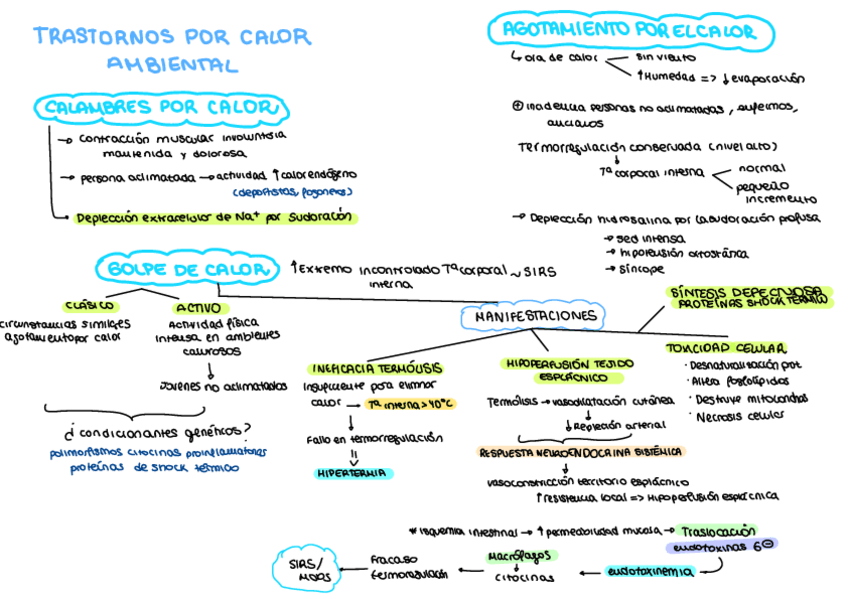 TRASTORNOS POR CALOR
AMBIENTAL
CALAMBRES POR CALOR
→ contracción muscular involuntaria
mantenida y dolorosa
→ persona aclimatada → actividad ↑ calor endógeno
(deportistas, fogoneros)
→ Deplección extracelular de Na+ por sudoración
AGOTAMIENTO POR EL CALOR
↳ ola de calor
sin viento
↑ Humedad => ↓ evaporación
personas no aclimatadas, enfermos,
ancianos
Termorregulación conservada (nivel alto)
Tª corporal interna
normal
pequeño
incremento
→ Deplección hidrosalina por la sudoración profusa
→ sed intensa
→ hipotensión ortostática
→ síncope
GOLPE DE CALOR
↑ Extremo incontrolado Tª corporal ~ SIRS
interna
CLÁSICO
circunstancias similares
agotamiento por calor
ACTIVO
Actividad física
intensa en ambientes
calurosos
Jóvenes no aclimatados
¿condicionantes genéticos?
polimorfismos citocinas proinflamatorias
proteínas de shock térmico
MANIFESTACIONES
INEFICACIA TERMÓLISIS
Insuficiente para eliminar
calor → Tª interna > 40°C
Fallo en termorregulación
HIPERTERMIA
HIPOPERFUSIÓN TEJIDO
ESPLÁCNICO
Termólisis → vasodilatación cutánea
↓ Repleción arterial
RESPUESTA NEUROENDOCRINA SISTÉMICA
vasoconstricción territorio esplácnico
↑ resistencia local => Hipoperfusión esplácnica
SÍNTESIS DEFECTUOSA
PROTEÍNAS SHOCK TÉRMICO
TOXICIDAD CELULAR
· Desnaturalización prot.
· Altera fosfolípidos
· Destruye mitocondrias
· Necrosis celular
* Isquemia intestinal → ↑ permeabilidad mucosa → Traslocación
endotoxinas G⊖
endotoxinemia
Macrófagos
citocinas
Fracaso
termorregulación
SIRS/
MODS